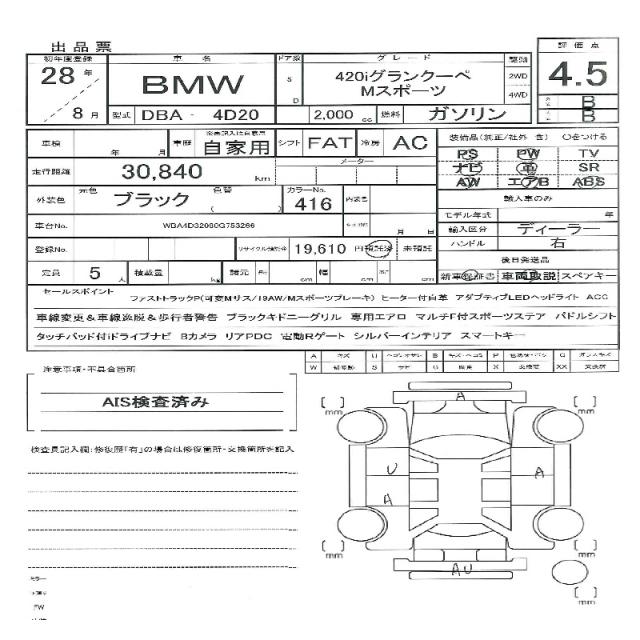 出品票
初年度登録 車名 ドア数 グレード 駆動 評価点
28年 BMW 5 D 420iグランクーペ Mスポーツ 2WD 4WD 4.5
8月 型式 DBA - 4D20 2,000 cc 燃料 ガソリン B B
車検 年 月 車歴 自家用 シフト FAT 冷房 AC 装備品(純正/社外 含) ○をつける
PS PW TV
走行距離 30,840 km メーター ナビ 革 SR
AW エアB ABS
外装色 元色 ブラック 色替 ( カラーNo. 416 内装色 輸入車のみ
モデル年式 年
車台No. WBA4D32060G753266 月 日 輸入区分 ディーラー
登録No. リサイクル預託金 19,610 円 預託済 未預託 ハンドル 右
後日発送品
定員 5人 積載量 kg 諸元 cm 幅 cm cm 新車保証書 車両取説 スペアキー
セールスポイント
ファストトラックP(可変Mサス/19AW/Mスポーツブレーキ) ヒーター付白革 アダプティブLEDヘッドライト ACC
車線変更&車線逸脱&歩行者警告 ブラックキドニーグリル 専用エアロ マルチF付スポーツステア パドルシフト
タッチパッド付iドライブナビ Bカメラ リアPDC 電動Rゲート シルバーインテリア スマートキー
注意事項・不具合箇所
AIS検査済み
検査員記入欄:修復歴「有」の場合は修復箇所・交換箇所を記入
A キズ U B P G
W S サビ C X XX
A
mm mm
U
A A
mm mm
AU
mm